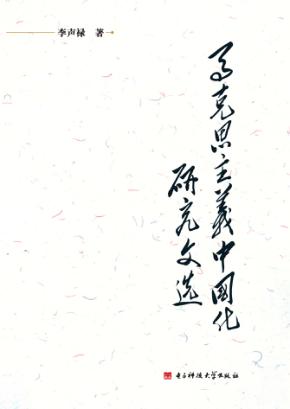 李声禄 著
马克思主義中国化
研究文选
电子科技大学出版社